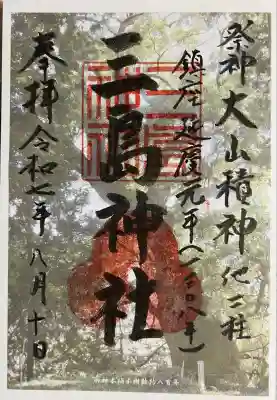 祭神 大山積神 他二柱
鎮座 延慶元年(一三〇八年)
三島神社
奉拝 令和七年 八月十日